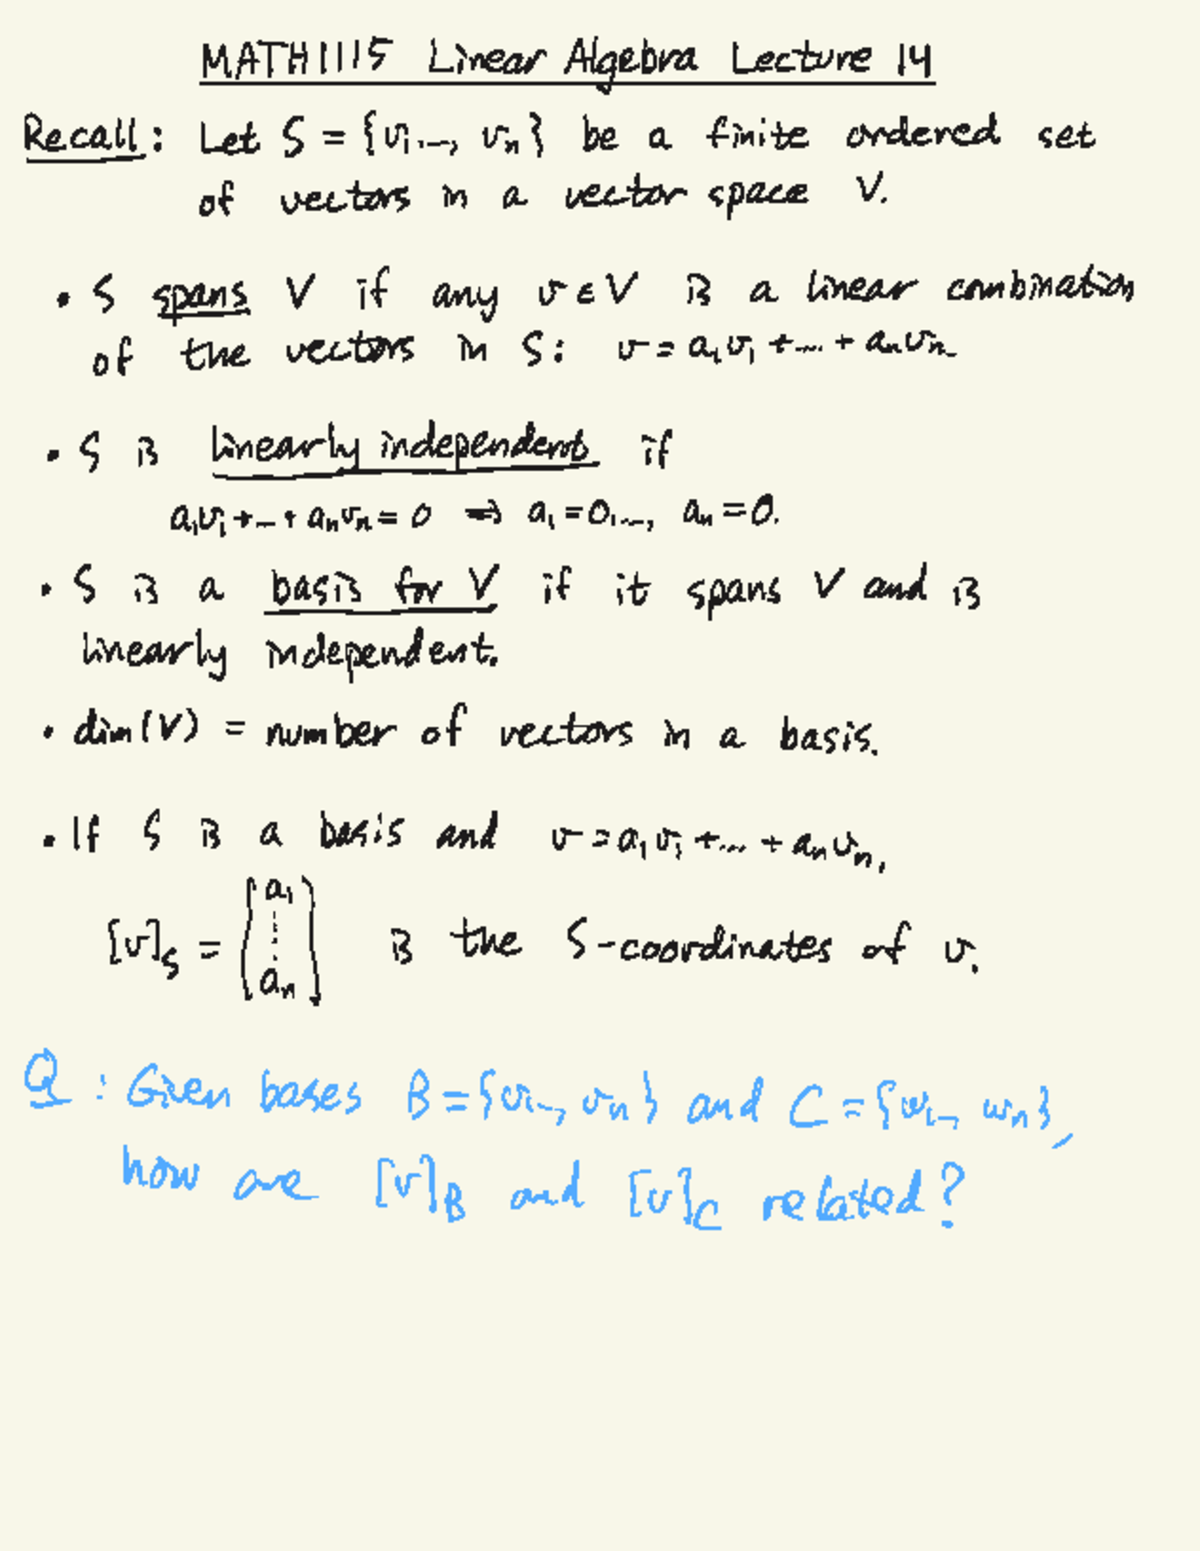 MATH1115 Linear Algebra Lecture 14
Recall: Let S = {v₁..., vₙ} be a finite ordered set
of vectors in a vector space V.
• S spans V if any v ∈ V is a linear combination
of the vectors in S: v = a₁v₁ + ... + aₙvₙ
• S is linearly independent if
a₁v₁ + ... + aₙvₙ = 0 ⇒ a₁ = 0, ..., aₙ = 0.
• S is a basis for V if it spans V and is
linearly independent.
• dim(V) = number of vectors in a basis.
• If S is a basis and v = a₁v₁ + ... + aₙvₙ,
[v]_S = (a₁ ⋮ aₙ) is the S-coordinates of v.
Q: Given bases B = {v₁..., vₙ} and C = {w₁..., wₙ},
how are [v]_B and [v]_C related?